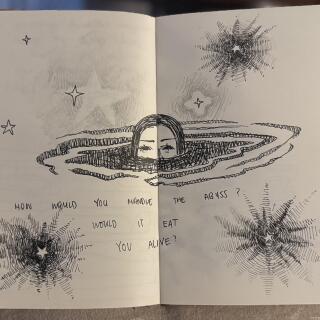 HOW WOULD YOU HANDLE THE ABYSS?
WOULD IT EAT
YOU ALIVE?